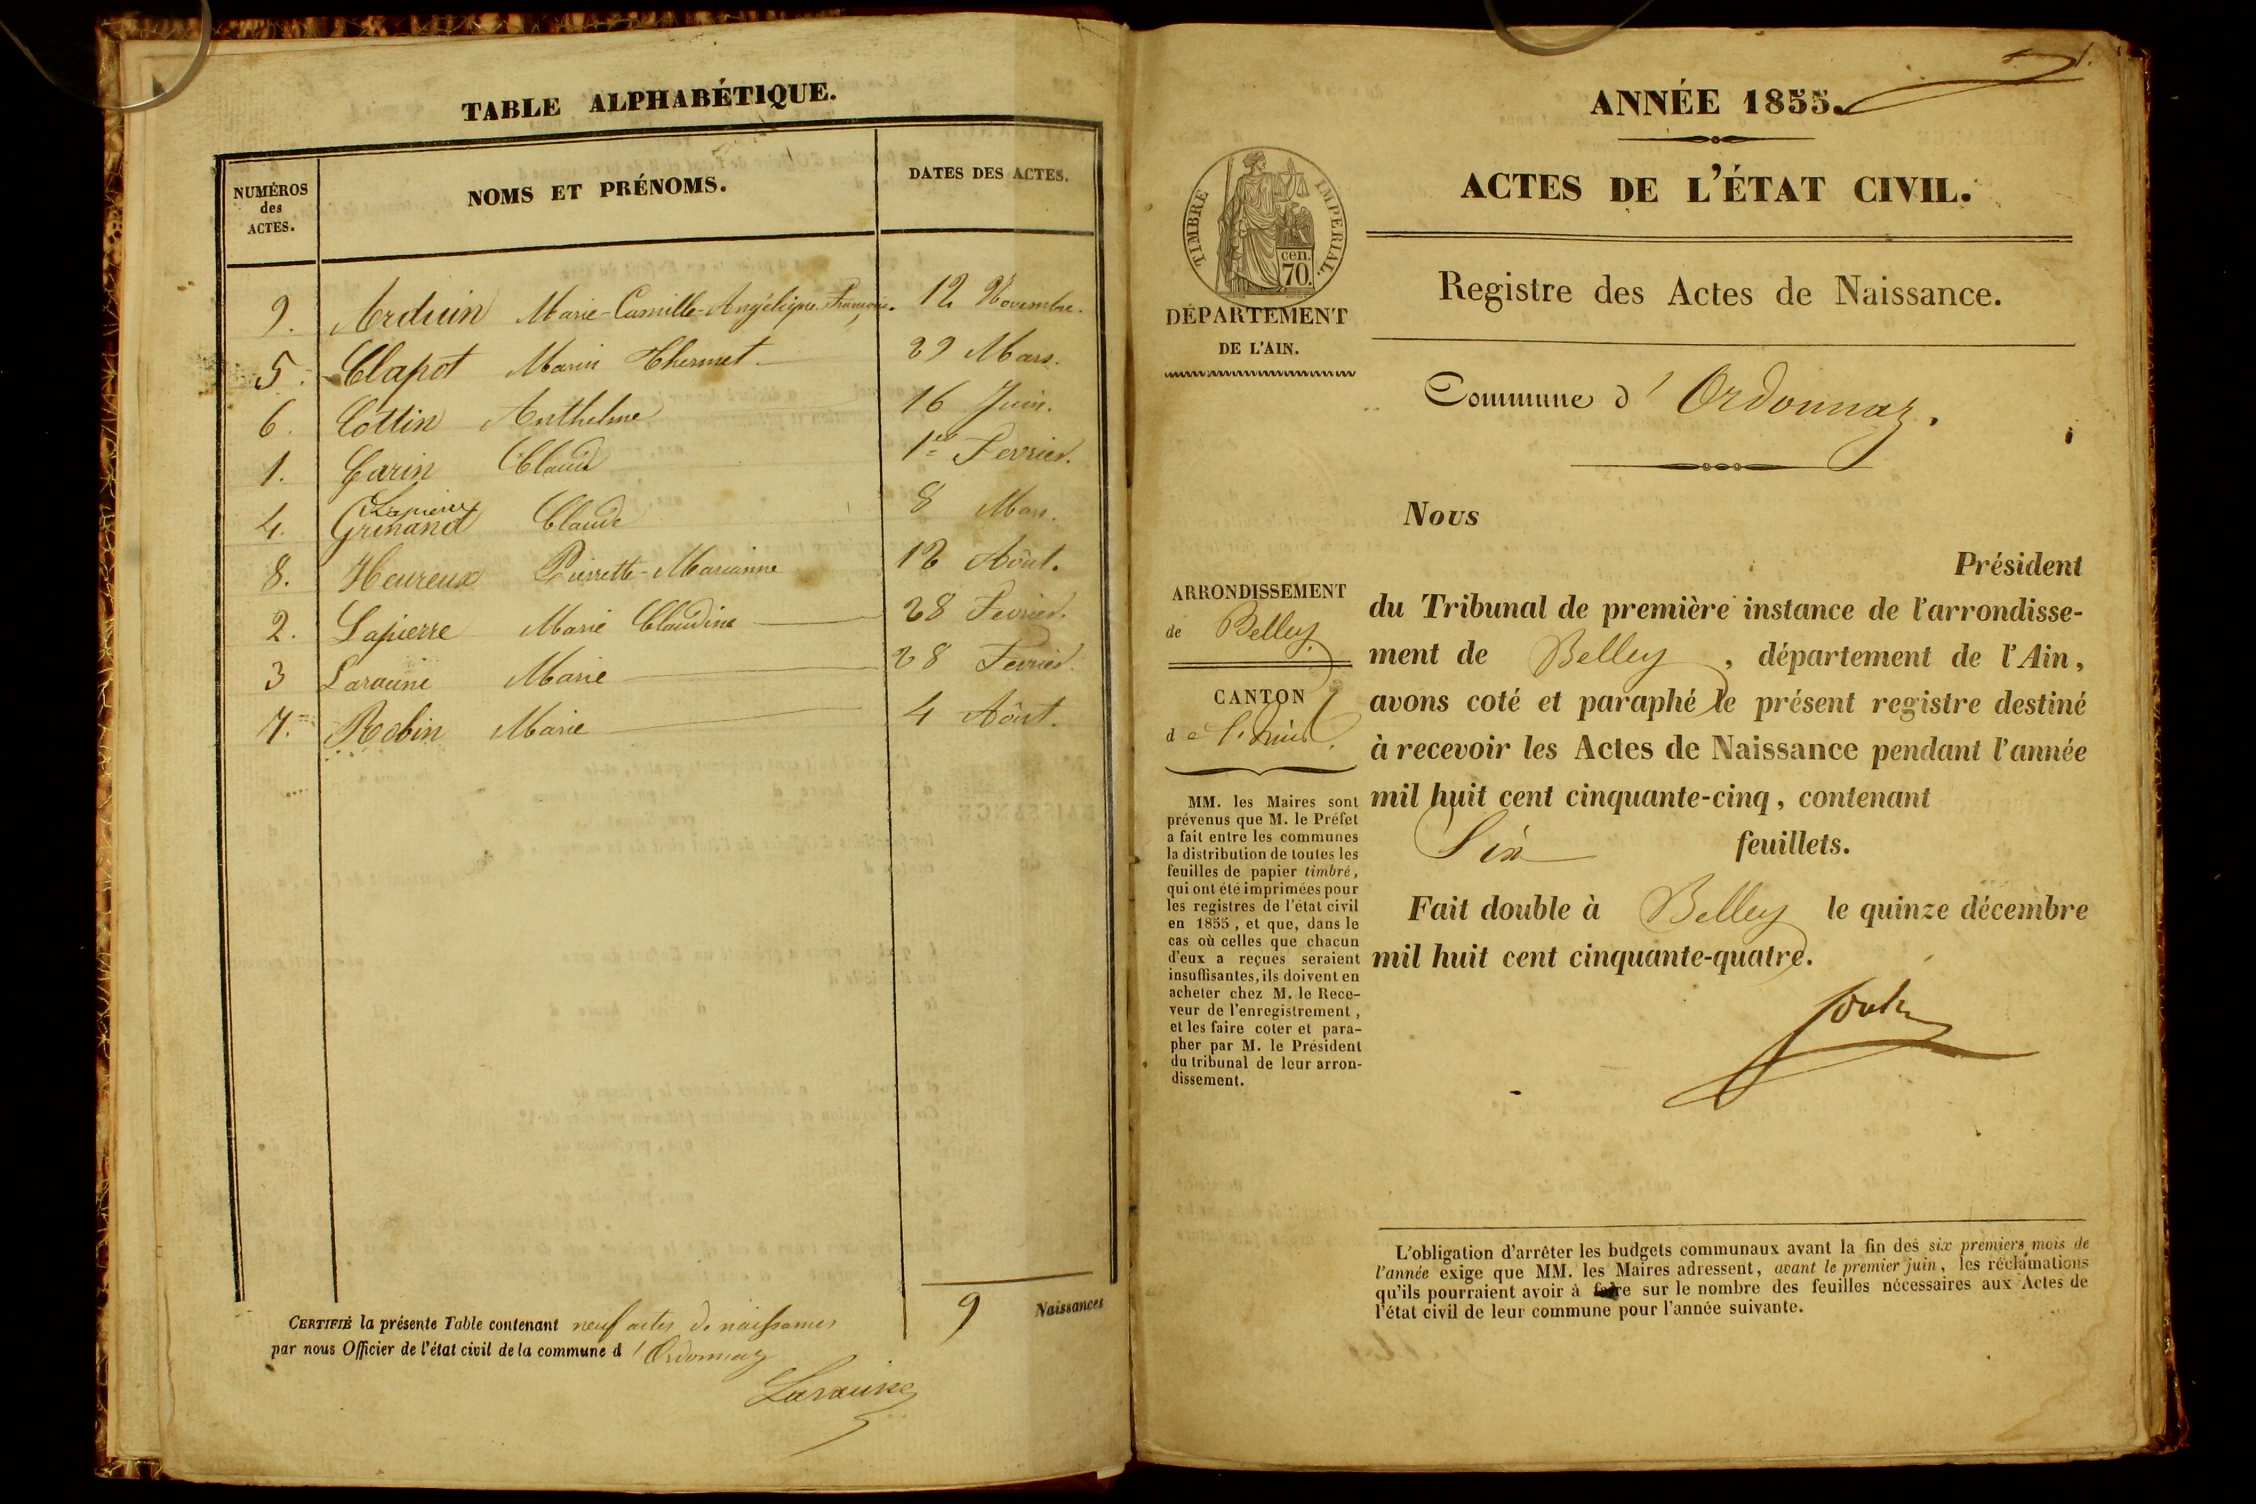 TABLE ALPHABÉTIQUE.
NUMÉROS
des
ACTES.
NOMS ET PRÉNOMS.
DATES DES ACTES.
9. Arduin Marie-Camille-Angélique-Françoise. 12 Novembre.
5. Clapot Marin Thermet 29 Mars.
6. Cottin Anthelme 16 Juin.
1. Garin Claude 1er Fevrier.
Lapierre
4. Grinand Claude 8 Mars.
8. Heureux Pierrette-Marianne 12 Août.
2. Lapierre Marie Claudine 28 Fevrier.
3 Laracine Marie 28 Fevrier.
7. Robin Marie 4 Août.
9 Naissances
CERTIFIÉ la présente Table contenant neuf actes de naissances
par nous Officier de l'état civil de la commune d'Ordonnaz
ANNÉE 1855.
ACTES DE L'ÉTAT CIVIL.
TIMBRE IMPERIAL.
cen.
70.
DÉPARTEMENT
DE L'AIN.
Registre des Actes de Naissance.
Commune d'Ordonnaz.
Nous
Président
du Tribunal de première instance de l'arrondisse-
ment de Belley, département de l'Ain,
avons coté et paraphé le présent registre destiné
à recevoir les Actes de Naissance pendant l'année
mil huit cent cinquante-cinq, contenant
Six feuillets.
Fait double à Belley le quinze décembre
mil huit cent cinquante-quatre.
ARRONDISSEMENT
de Belley.
CANTON
de
MM. les Maires sont
prévenus que M. le Préfet
a fait entre les communes
la distribution de toutes les
feuilles de papier timbré,
qui ont été imprimées pour
les registres de l'état civil
en 1855, et que, dans le
cas où celles que chacun
d'eux a reçues seraient
insuffisantes, ils doivent en
acheter chez M. le Rece-
veur de l'enregistrement,
et les faire coter et para-
pher par M. le Président
du tribunal de leur arron-
dissement.
L'obligation d'arrêter les budgets communaux avant la fin des six premiers mois de
l'année exige que MM. les Maires adressent, avant le premier juin, les réclamations
qu'ils pourraient avoir à faire sur le nombre des feuilles nécessaires aux Actes de
l'état civil de leur commune pour l'année suivante.